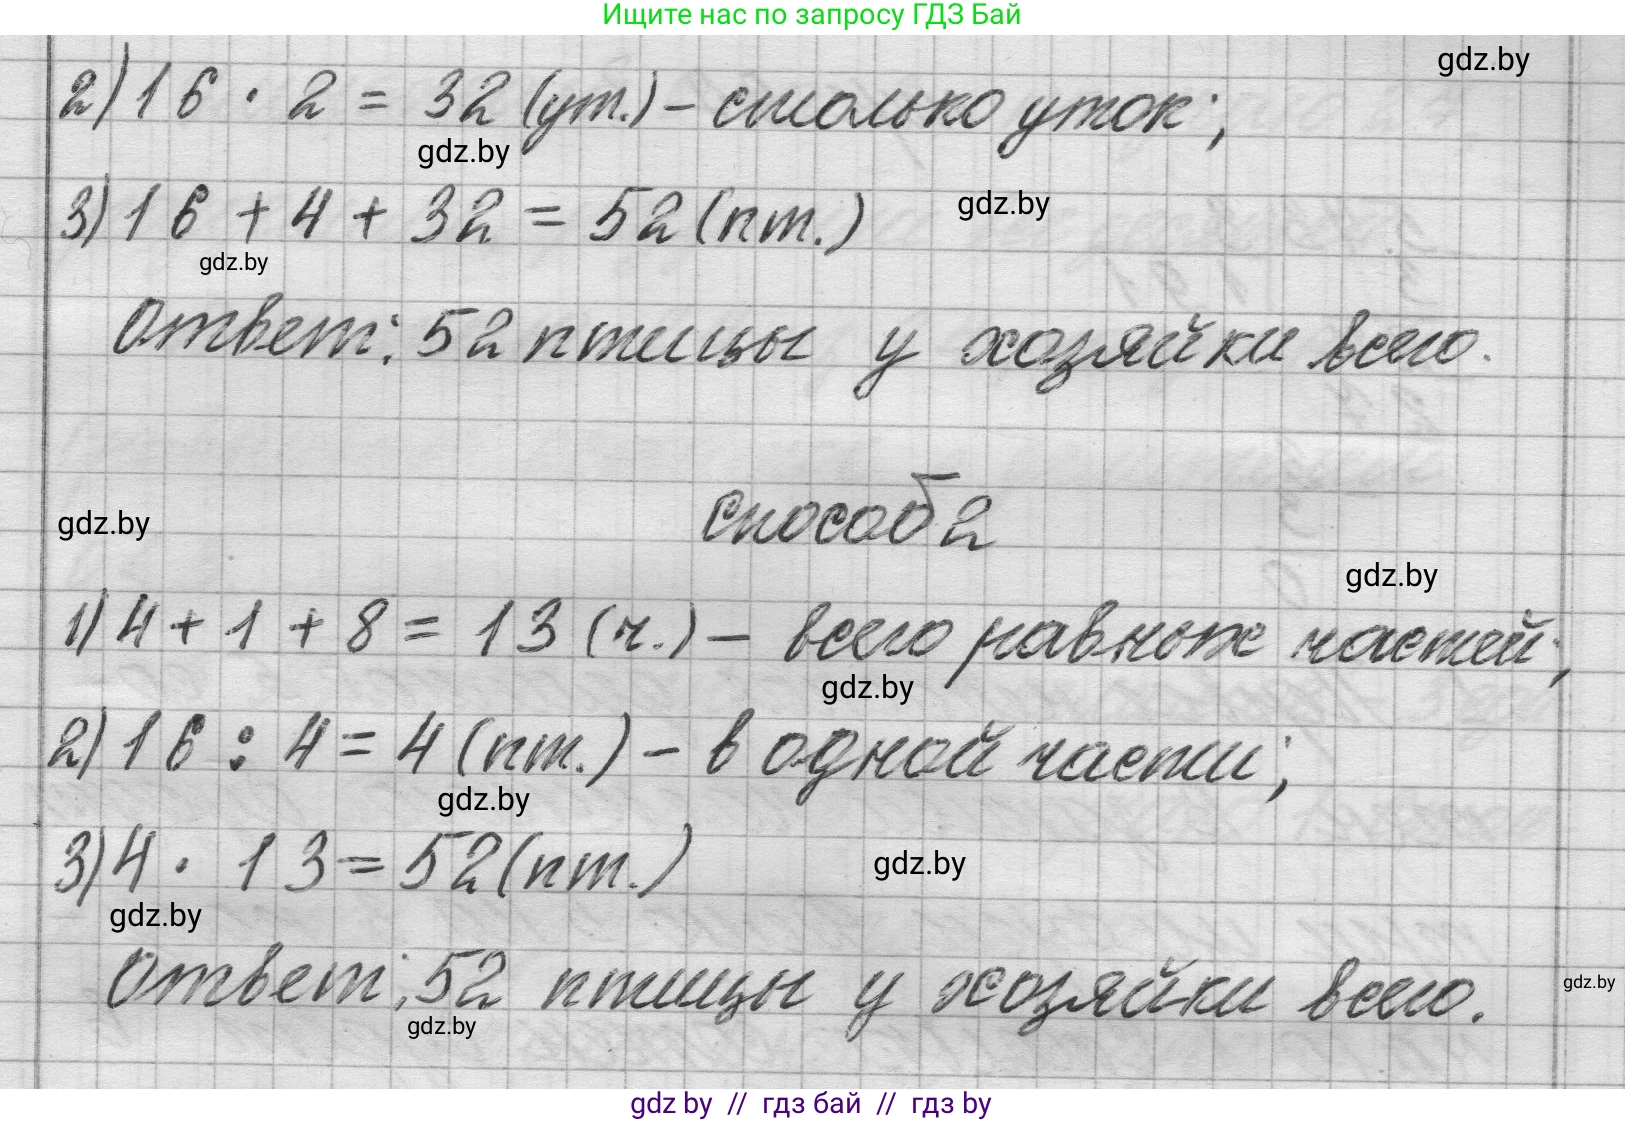 Ищите нас по запросу ГДЗ Бай
gdz.by
2) 16 · 2 = 32 (ут.) – столько уток;
gdz.by
3) 16 + 4 + 32 = 52 (пт.)
gdz.by
gdz.by
Ответ: 52 птицы у хозяйки всего.
способ 2
gdz.by
gdz.by
1) 4 + 1 + 8 = 13 (ч.) – всего равных частей;
gdz.by
2) 16 : 4 = 4 (пт.) – в одной части;
gdz.by
3) 4 · 13 = 52 (пт.)
gdz.by
gdz.by
Ответ: 52 птицы у хозяйки всего.
gdz.by
gdz.by
gdz by // гдз бай // гдз by